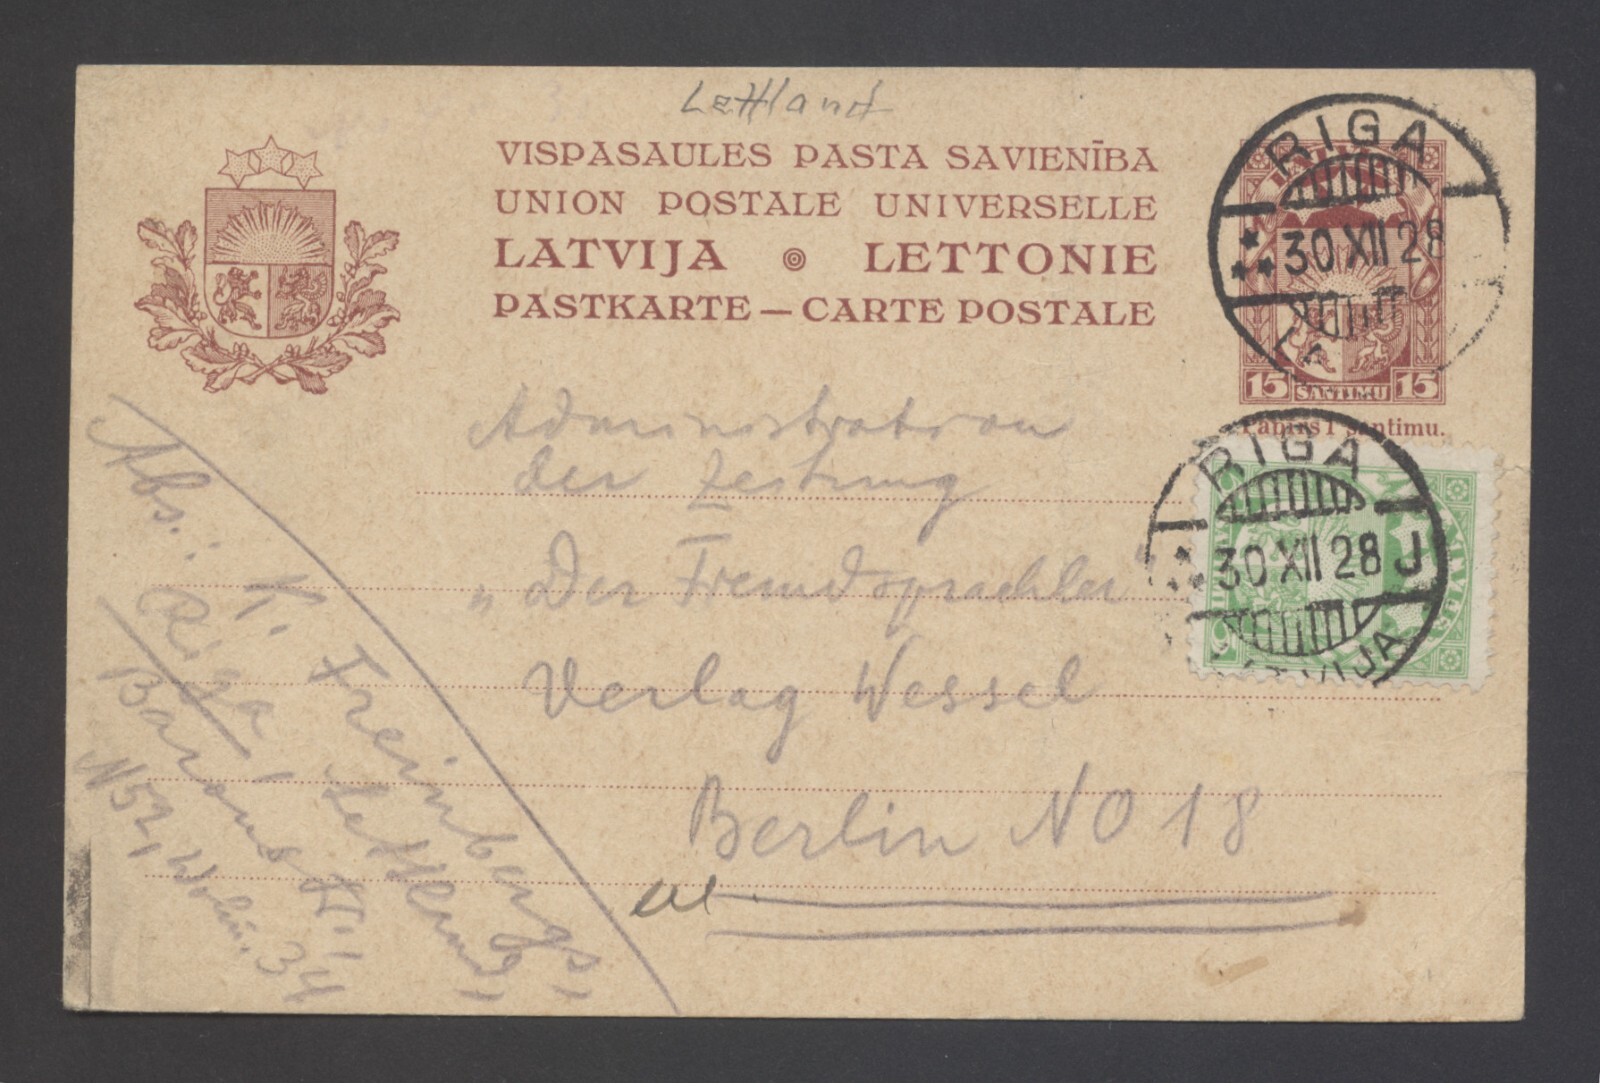 Lettland
VISPASAULES PASTA SAVIENĪBA
UNION POSTALE UNIVERSELLE
LATVIJA LETTONIE
PASTKARTE — CARTE POSTALE
RIGA
30 XII 28
15 SANTIMU 15
Papirs 1 santimu.
RIGA
30 XII 28 J
LATVIJA
Administration
der Zeitung
„Der Fremdsprachler"
Verlag Wessel
Berlin NO 18
Abs.:
K. Freinbergs,
Riga / Lettland,
Barona
N 52, Wohn. 34